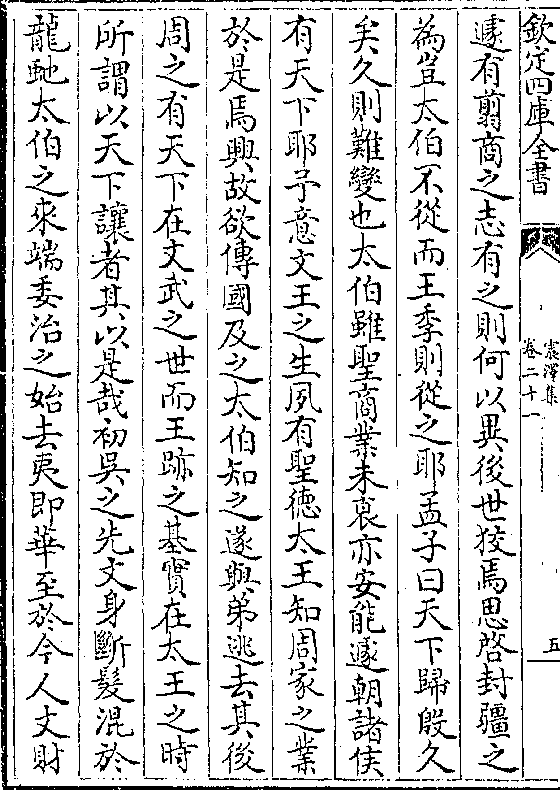 欽定四庫全書
震澤集
卷二十一
五
遽有翦商之志有之則何以異後世狡焉思啓封疆之
為豈太伯不從而王季則從之耶孟子曰天下歸殷久
矣久則難變也太伯雖聖商業未衰亦安能遽朝諸侯
有天下耶予意文王之生夙有聖德太王知周家之業
於是焉興故欲傳國及之太伯知之遂與弟逃去其後
周之有天下在文武之世而王跡之基實在太王之時
所謂以天下讓者其以是哉初吳之先文身斷髮混於
龍虵太伯之來端委治之始去夷即華至於今人文財